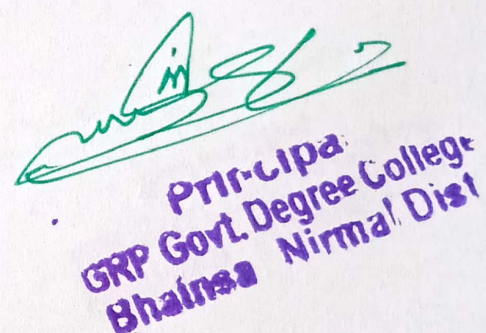 Principal
GRP Govt. Degree College
Bhainsa Nirmal Dist